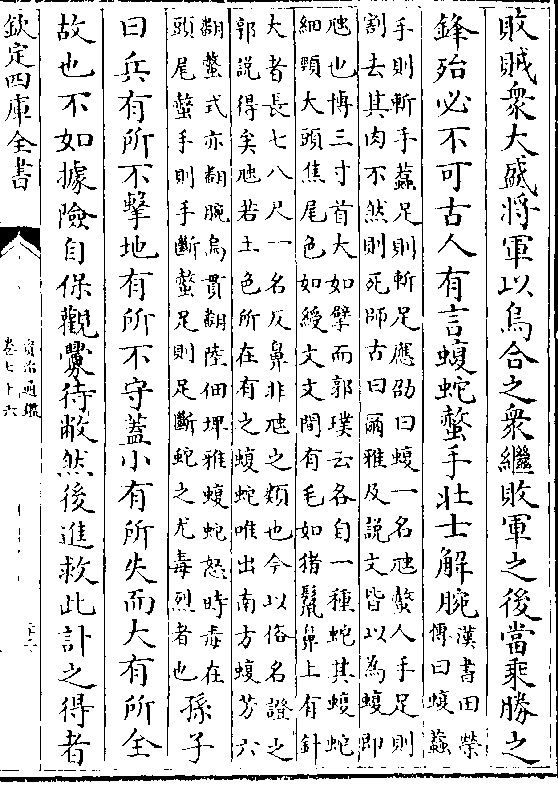 敗賊衆大盛將軍以烏合之衆繼敗軍之後當乗勝之
鋒殆必不可古人有言蝮蛇螫手壯士解腕
漢書田榮
傳曰蝮蠚
手則斬手蠚足則斬足應劭曰蝮一名虺螫人手足則
割去其肉不然則死師古曰爾雅及説文皆以為蝮即
虺也博三寸首大如擘而郭璞云各自一種蛇其蝮蛇
細頸大頭焦尾色如綬文文間有毛如猪鬛鼻上有針
大者長七八尺一名反鼻非虺之類也今以俗名證之
郭説得矣虺若土色所在有之蝮蛇唯出南方蝮芳六
翻螫式亦翻腕烏貫翻陸佃埤雅蝮蛇怒時毒在
頭尾螫手則手斷螫足則足斷蛇之尤毒烈者也
孫子
曰兵有所不擊地有所不守蓋小有所失而大有所全
故也不如據險自保觀釁待敝然後進救此計之得者
欽定四庫全書
資治通鑑
卷七十六